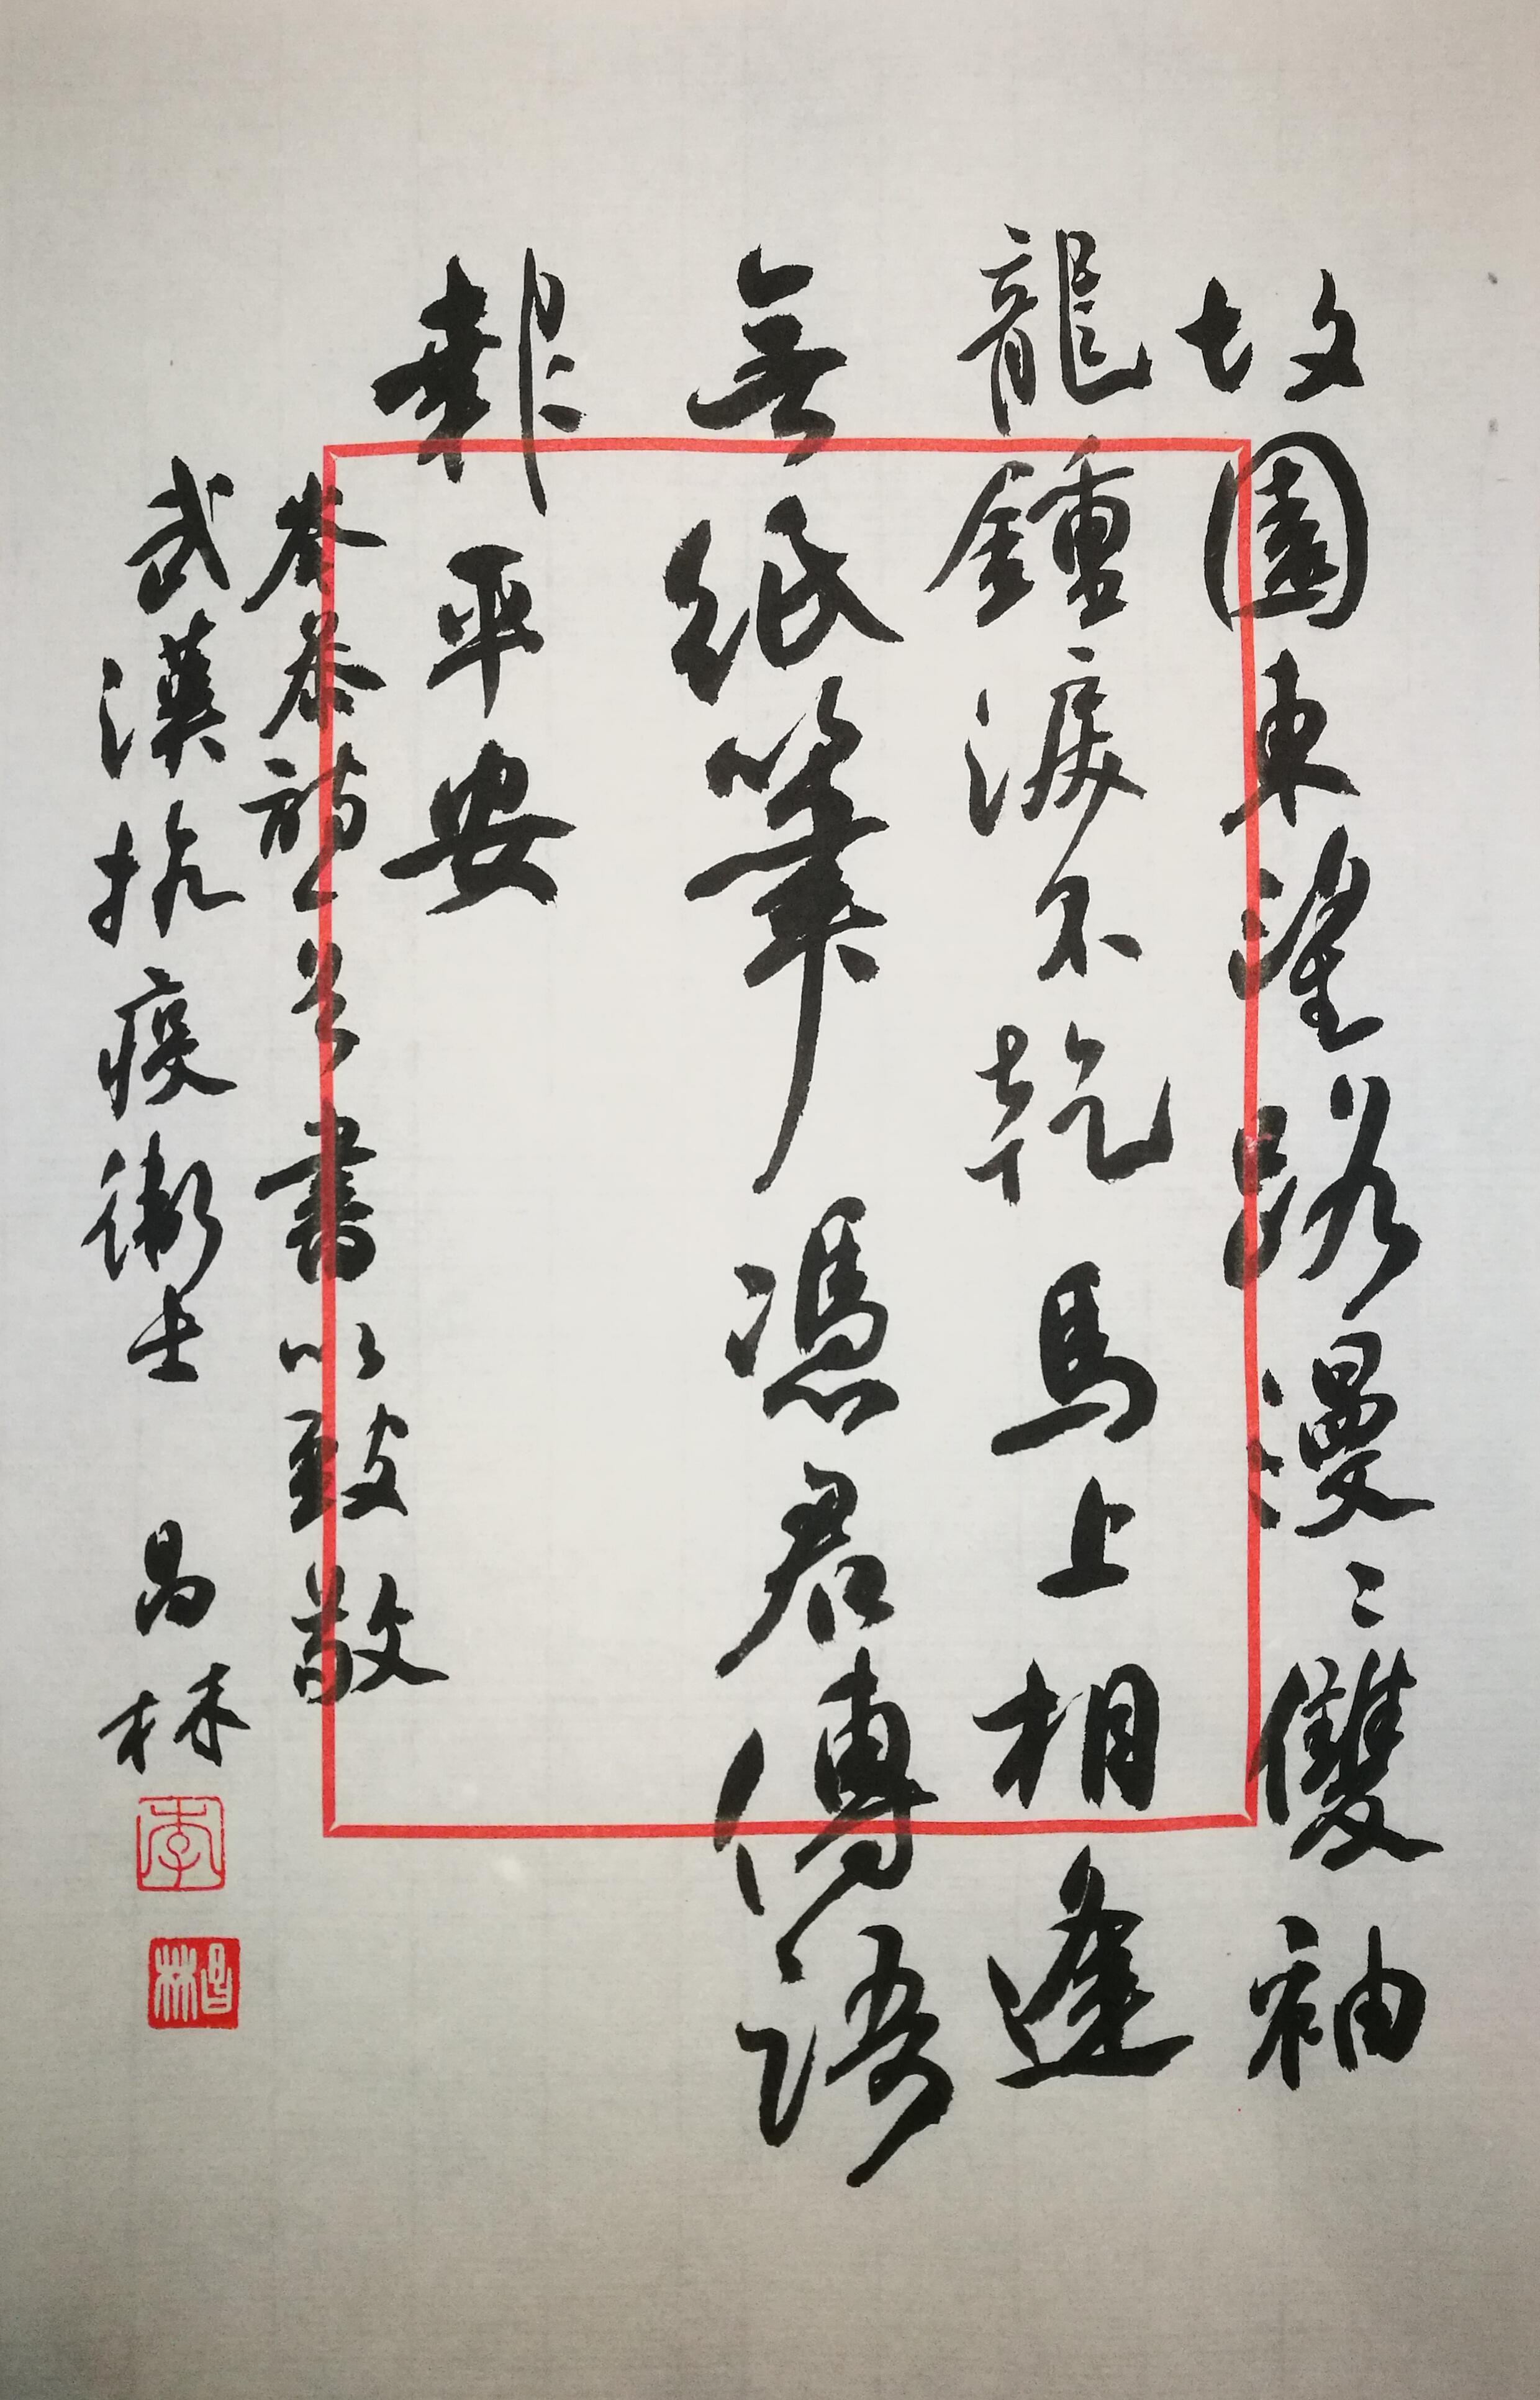 故園東望路漫〻雙袖
龍鍾淚不乾馬上相逢
無紙筆憑君傳語
報平安
岑參詩一首書以致敬
武漢抗疫衛士 昌林
李
昌林